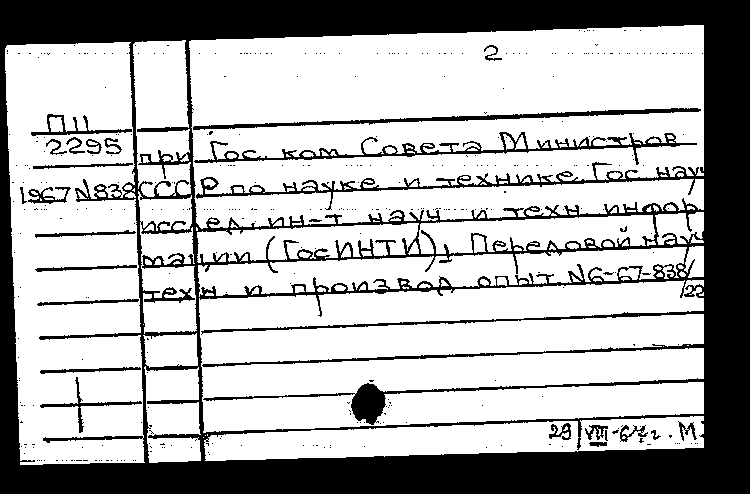 2
П11
2295 при Гос. ком. Совета Министров
1967 N838 СССР по науке и технике. Гос. науч
исслед. ин-т науч и техн инфор
мации (ГосИНТИ), Передовой науч
техн и производ опыт. N6-67-838/
/22
29/VIII-67г. М.